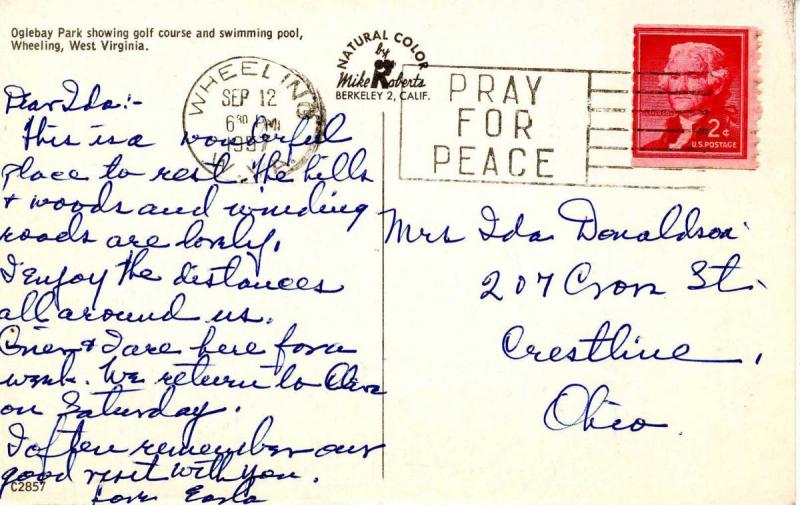 Oglebay Park showing golf course and swimming pool,
Wheeling, West Virginia.
NATURAL COLOR
by
Mike Roberts
BERKELEY 2, CALIF.
WHEELING
SEP 12
6 30 PM
1957
W. VA.
PRAY
FOR
PEACE
2¢
U.S. POSTAGE
Dear Ida:-
This is a wonderful
place to rest. The hills
+ woods and winding
roads are lovely.
I enjoy the distances
all around us.
+ I are here for a
week. We return to
on Saturday.
I often remember our
good visit with you.
Love
C2857
Mrs Ida Donaldson
207 Cross St.
Crestline,
Ohio